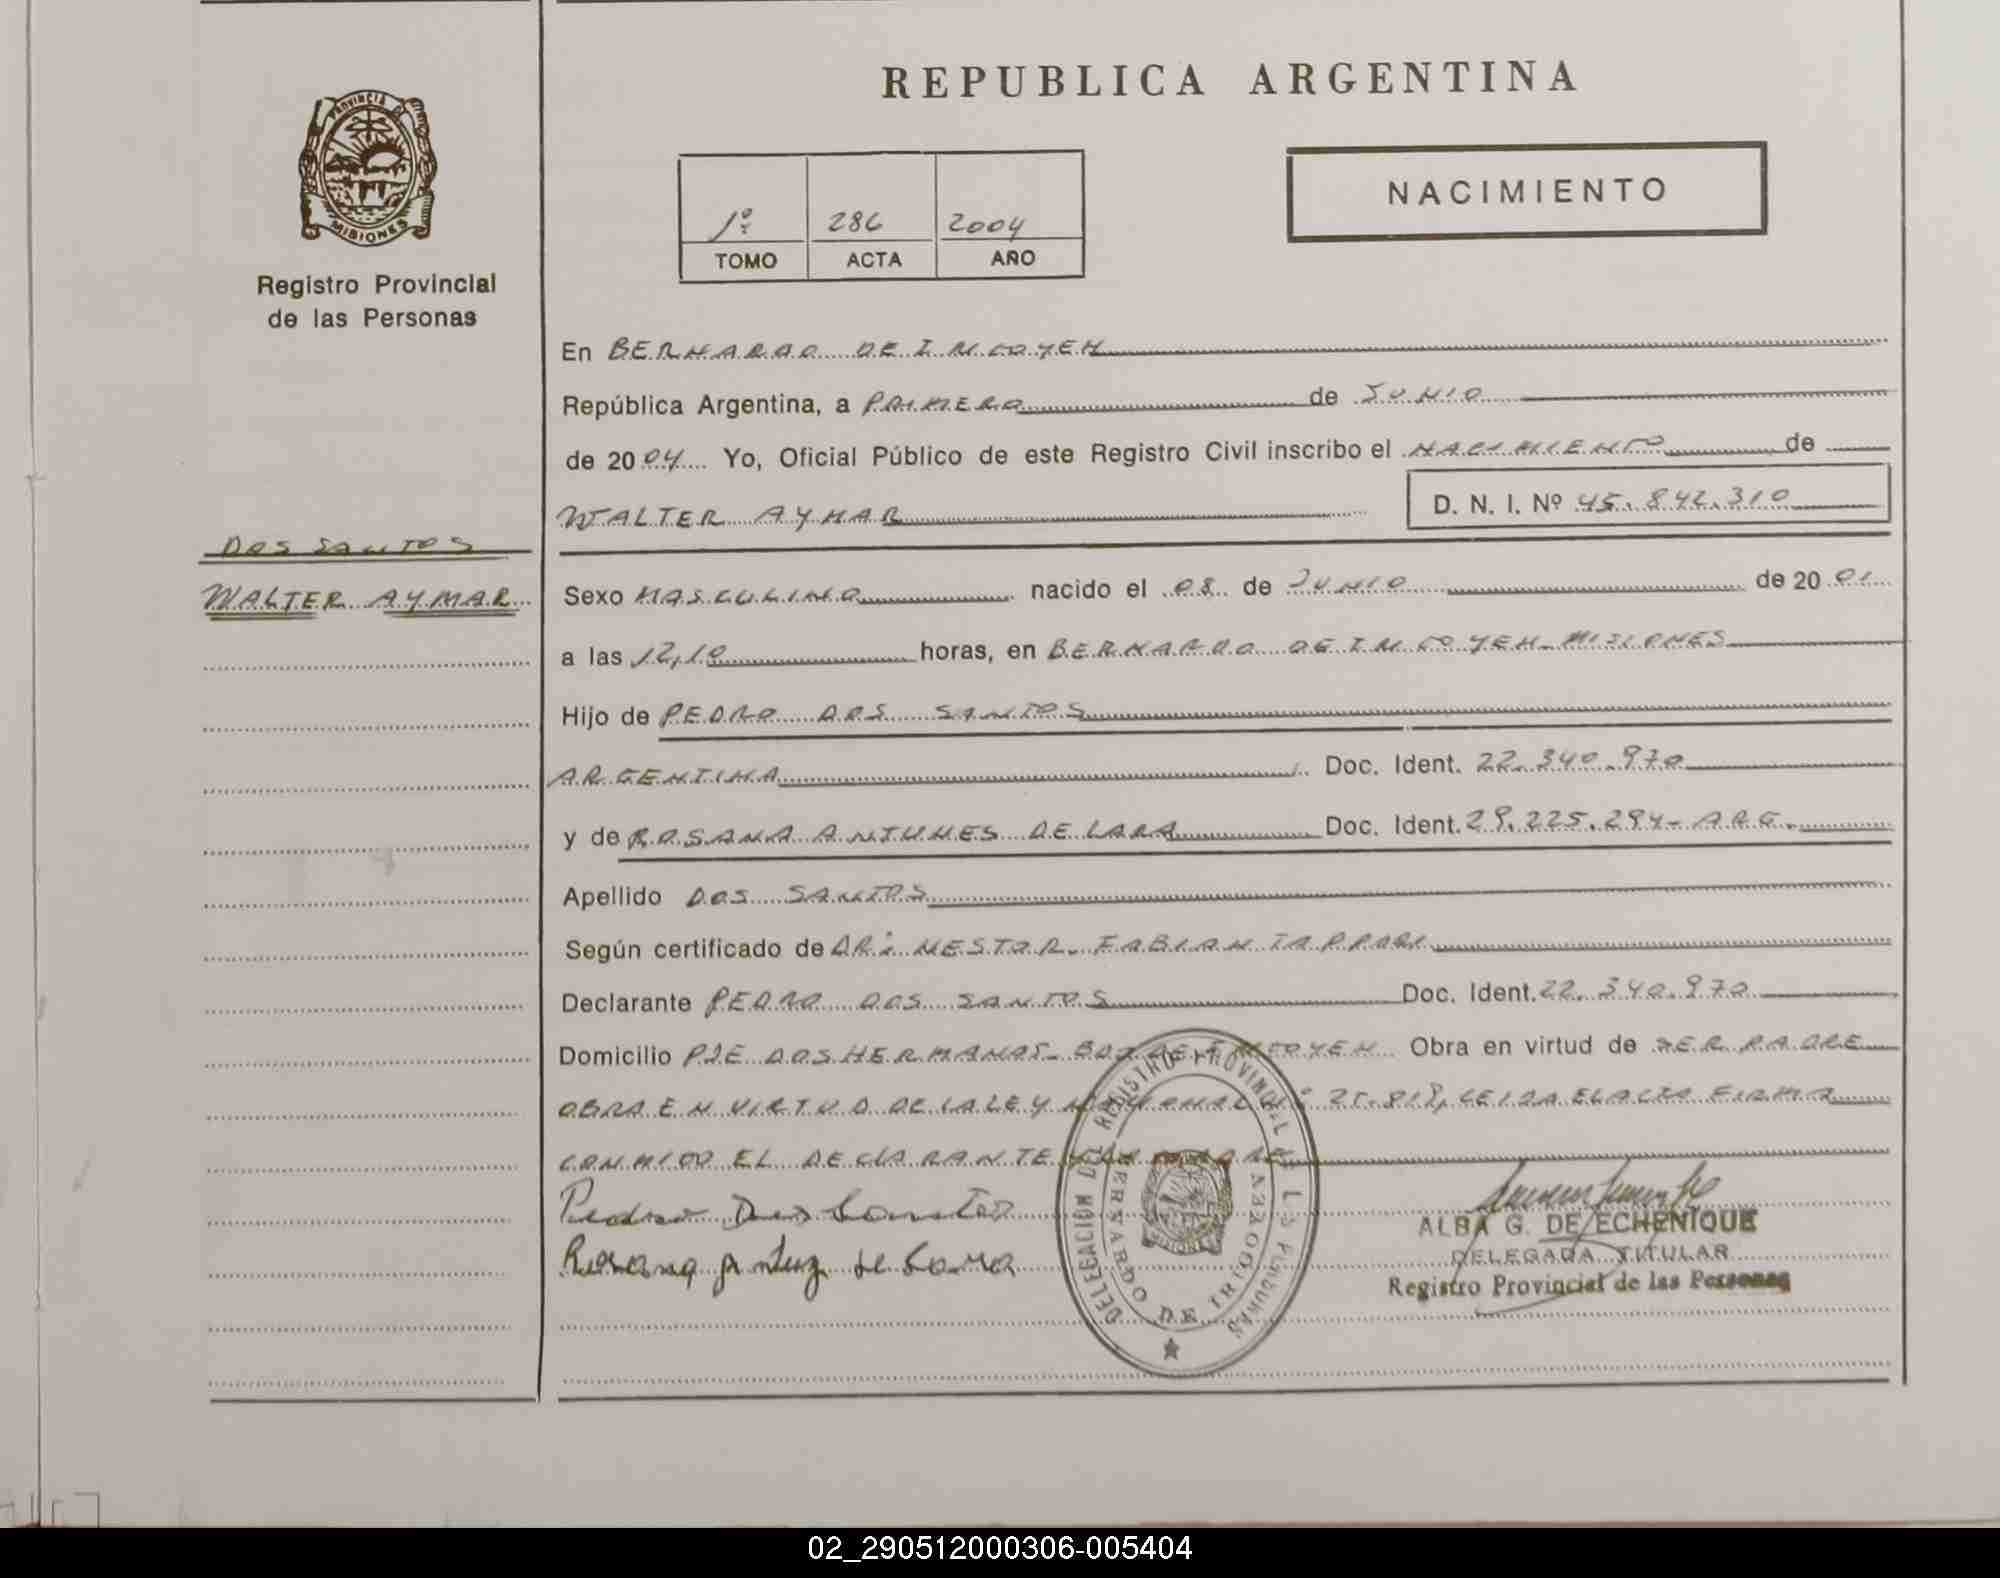 REPUBLICA ARGENTINA
PROVINCIA DE
MISIONES
Registro Provincial
de las Personas
1º 286 2004
TOMO ACTA AÑO
NACIMIENTO
En BERNARDO DE IRIGOYEN
República Argentina, a PRIMERO de JUNIO
de 2004 Yo, Oficial Público de este Registro Civil inscribo el NACIMIENTO de
WALTER AYMAR D. N. I. Nº 45.842.310
DOS SANTOS
WALTER AYMAR
Sexo MASCULINO nacido el 08 de JUNIO de 2001
a las 12,10 horas, en BERNARDO DE IRIGOYEN-MISIONES
Hijo de PEDRO DOS SANTOS
ARGENTINA Doc. Ident. 22.340.970
y de ROSANA ANTUNES DE LARA Doc. Ident. 29.225.294-ARG.
Apellido DOS SANTOS
Según certificado de DR: NESTOR FABIAN
Declarante PEDRO DOS SANTOS Doc. Ident. 22.340.970
Domicilio PJE DOS HERMANAS- BDO DE IRIGOYEN Obra en virtud de SER PADRE
OBRA EN VIRTUD DE LA LEY NACIONAL Nº 25.818, LEIDA EL ACTA FIRMA
CONMIGO EL DECLARANTE Y LA MADRE
Pedro Dos Santos
Rosana Antunez de Lara
DELEGACION DEL REGISTRO PROVINCIAL DE LAS PERSONAS
BERNARDO DE IRIGOYEN
MISIONES
ALBA G. DE ECHENIQUE
DELEGADA TITULAR
Registro Provincial de las Personas
02_290512000306-005404